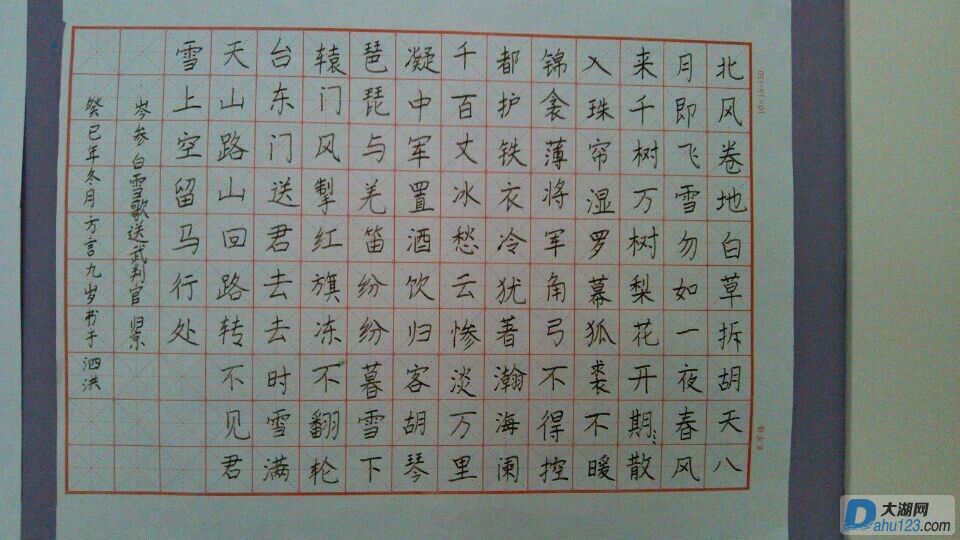 北风卷地白草拆胡天八
月即飞雪勿如一夜春风
来千树万树梨花开期散
入珠帘湿罗幕狐裘不暖
锦衾薄将军角弓不得控
都护铁衣冷犹著瀚海阑
千百丈冰愁云惨淡万里
凝中军置酒饮归客胡琴
琵琶与羌笛纷纷暮雪下
辕门风掣红旗冻不翻轮
台东门送君去去时雪满
天山路山回路转不见君
雪上空留马行处
岑参白雪歌送武判官归京
癸巳年冬月方言九岁书于泗洪
10×15=150
大湖网
Dahu123.com